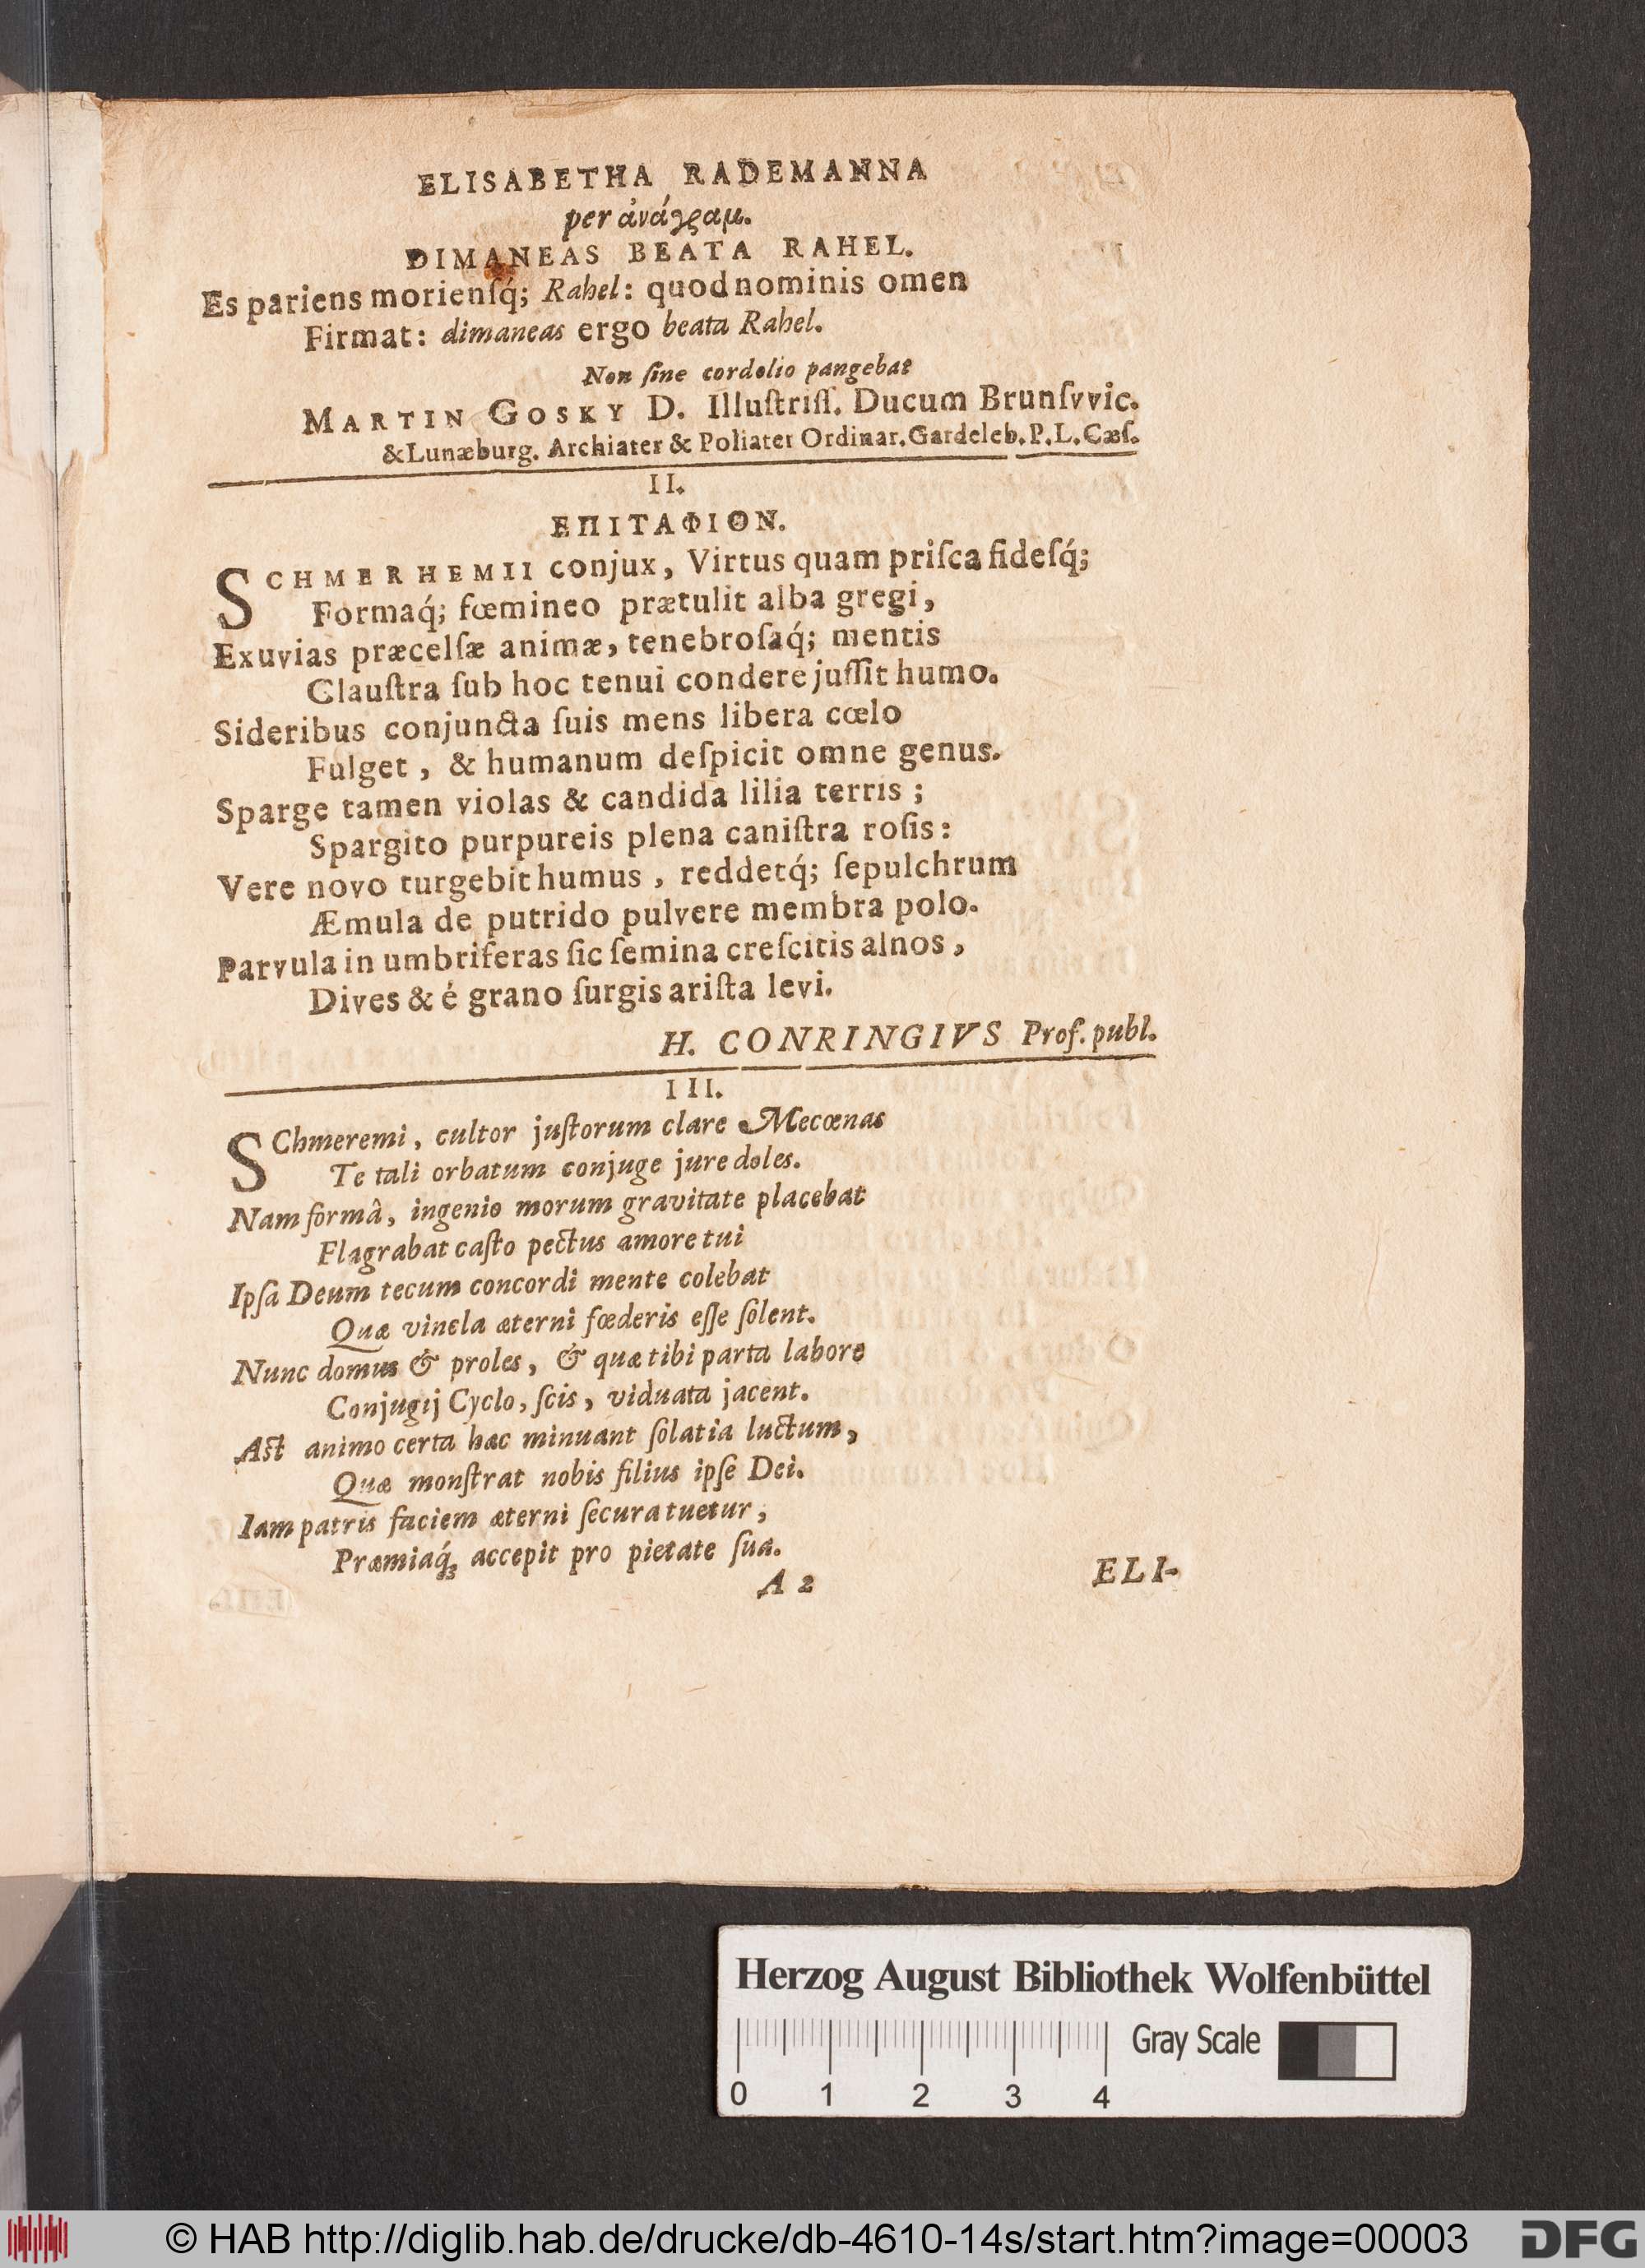 ELISABETHA RADEMANNA
per ἀνάγραμ.
DIMANEAS BEATA RAHEL.
Es pariens morienſq́; Rahel: quod nominis omen
Firmat: dimaneas ergo beata Rahel.
Non ſine cordolio pangebat
MARTIN GOSKY D. Illuſtriſſ. Ducum Brunſvvic.
& Lunæburg. Archiater & Poliater Ordinar. Gardeleb. P. L. Cæſ.
II.
ΕΠΙΤΑΦΙΟΝ.
SCHMERHEMII conjux, Virtus quam priſca fideſq́;
Formaq́; fœmineo prætulit alba gregi,
Exuvias præcelſæ animæ, tenebroſaq́; mentis
Clauſtra ſub hoc tenui condere juſſit humo.
Sideribus conjuncta ſuis mens libera cœlo
Fulget, & humanum deſpicit omne genus.
Sparge tamen violas & candida lilia terris;
Spargito purpureis plena caniſtra roſis:
Vere novo turgebit humus, reddetq́; ſepulchrum
Æmula de putrido pulvere membra polo.
Parvula in umbriferas ſic ſemina creſcitis alnos,
Dives & é grano ſurgis ariſta levi.
H. CONRINGIVS Prof. publ.
III.
SChmeremi, cultor juſtorum clare Mecœnas
Te tali orbatum conjuge jure doles.
Nam formâ, ingenio morum gravitate placebat
Flagrabat caſto pectus amore tui
Ipſa Deum tecum concordi mente colebat
Quæ vincla æterni fœderis eſſe ſolent.
Nunc domus & proles, & quæ tibi parta labore
Conjugij Cyclo, ſcis, viduata jacent.
Aſt animo certa hæc minuant ſolatia luctum,
Quæ monſtrat nobis filius ipſe Dei.
Iam patris faciem æterni ſecura tuetur,
Præmiaq́; accepit pro pietate ſua.
A 2 ELI-
Herzog August Bibliothek Wolfenbüttel
Gray Scale
0 1 2 3 4
© HAB http://diglib.hab.de/drucke/db-4610-14s/start.htm?image=00003 DFG